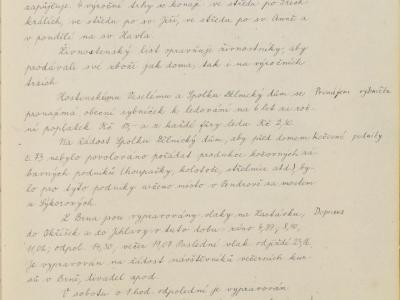 zapůjčuje. 4 výroční trhy se konají ve středu po Třech
králích, ve středu po sv. Jiří, ve středu po sv. Anně a
v pondělí na sv. Havla.
Živnostenský list opravňuje živnostníky, aby
prodávali své zboží jak doma, tak i na výročních
trzích.
Hostinskému Veselému a Spolku Dělnický dům se Pronájem rybníčka
pronajímá obecní rybníček k ledování na 6 let za roč-
ní poplatek Kč a z každé fůry ledu Kč
Na žádost Spolku Dělnický dům, aby před domem Kočovné podniky
č. 73 nebylo povolováno pořádat produkce kočovných zá-
bavných podniků (houpačky, kolotoče, střelnice atd.) by-
lo pro tyto podniky určeno místo v za mostem
u Sýkorových.
Z Brna jsou vypravovány vlaky na Zastávku, Doprava
do Okříšek a do Jihlavy v tuto dobu: ráno
odpol. 14,30, večer Poslední vlak odjíždí
Je vypravován na žádost návštěvníků večerních kur-
sů v Brně, divadel apod.
V sobotu o 1 hod. odpolední je vypravován